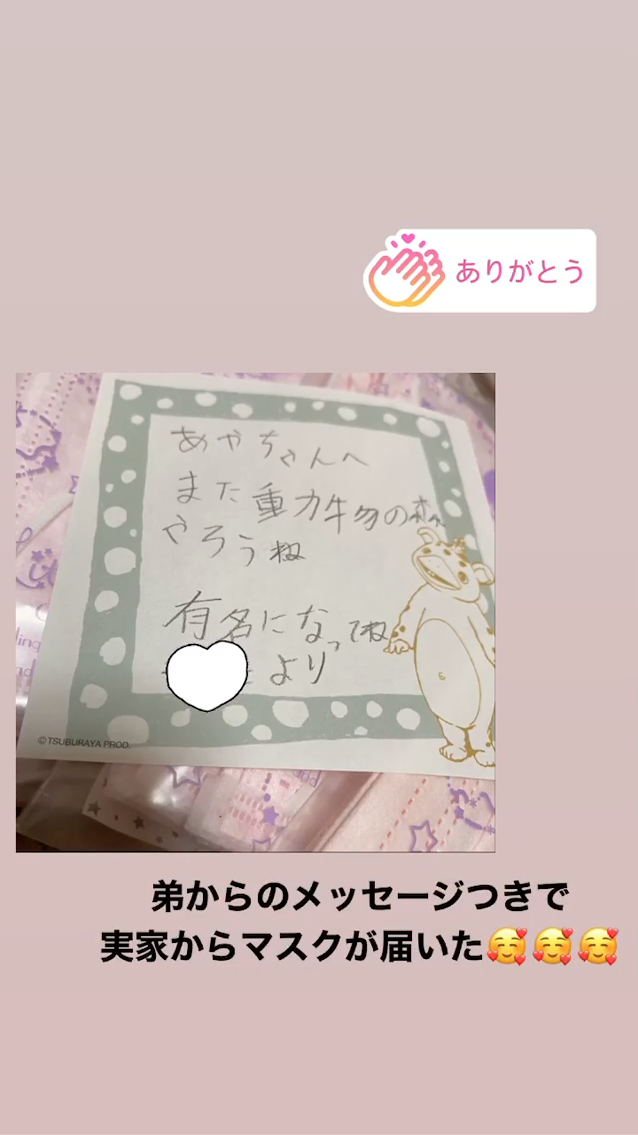 ありがとう
あやちゃんへ
また重力牛勿の森
やろうね
有名になってね
より
©TSUBURAYA PROD.
弟からのメッセージつきで
実家からマスクが届いた🥰🥰🥰